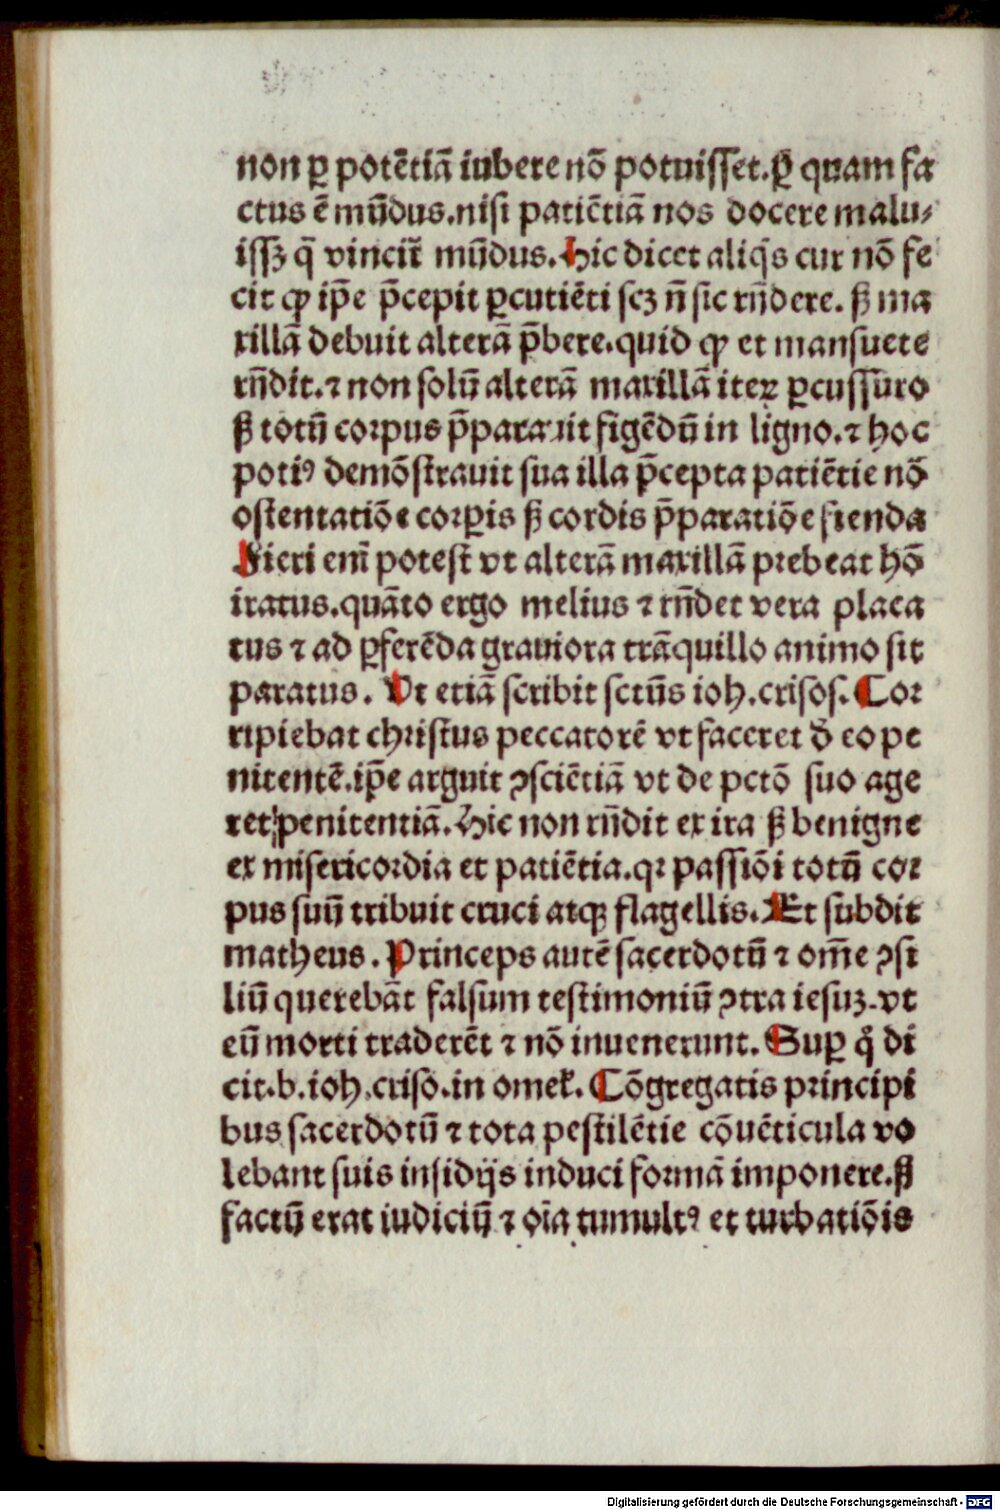 non ꝑ potētiā iubere nō potuisset.ꝑ quam fa
ctus ē mūdus.nisi patiētiā nos docere malu⸗
issꝫ q̄ vincit̄ mūdus.Hic dicet aliq̇s cur nō fe
cit ꝙ ip̄e p̄cepit ꝑcutiēti scꝫ n̄ sic rn̄dere. sꝫ ma
xillā debuit alterā p̄bere.quid ꝙ et mansuete
rn̄dit.⁊ non solū alterā maxillā iteꝝ ꝑcussuro
sꝫ totū corpus p̄parauit figēdū in ligno.⁊ hoc
potiꝰ demōstrauit sua illa p̄cepta patiētie nō
ostentatiōe corꝑis sꝫ cordis p̄paratiōe fienda
Fieri em̄ potest vt alterā maxillā prebeat hō
iratus.quāto ergo melius ⁊ rn̄det vera placa
tus ⁊ ad ꝑferēda grauiora trāquillo animo sit
paratus. Vt etiā scribit sctūs ioh.crisos.Cor
ripiebat christus peccatorē vt faceret d̄ eo pe
nitentē.ip̄e arguit ꝯsciētiā vt de pctō suo age
ret penitentiā.Hic non rn̄dit ex ira sꝫ benigne
ex misericordia et patiētia.qꝛ passiōi totū cor
pus suū tribuit cruci atqꝫ flagellis.Et subdit
matheus. Princeps autē sacerdotū ⁊ om̄e ꝯsi
liū querebāt falsum testimoniū ꝯtra iesuꝫ.vt
eū morti traderēt ⁊ nō inuenerunt.Suꝑ q̊ di
cit.b.ioh.criso.in omeł. Cōgregatis principi
bus sacerdotū ⁊ tota pestilētie cōuēticula vo
lebant suis insidijs induci formā imponere.sꝫ
factū erat iudiciū ⁊ oīa tumultꝰ et turbatiōis
Digitalisierung gefördert durch die Deutsche Forschungsgemeinschaft - DFG